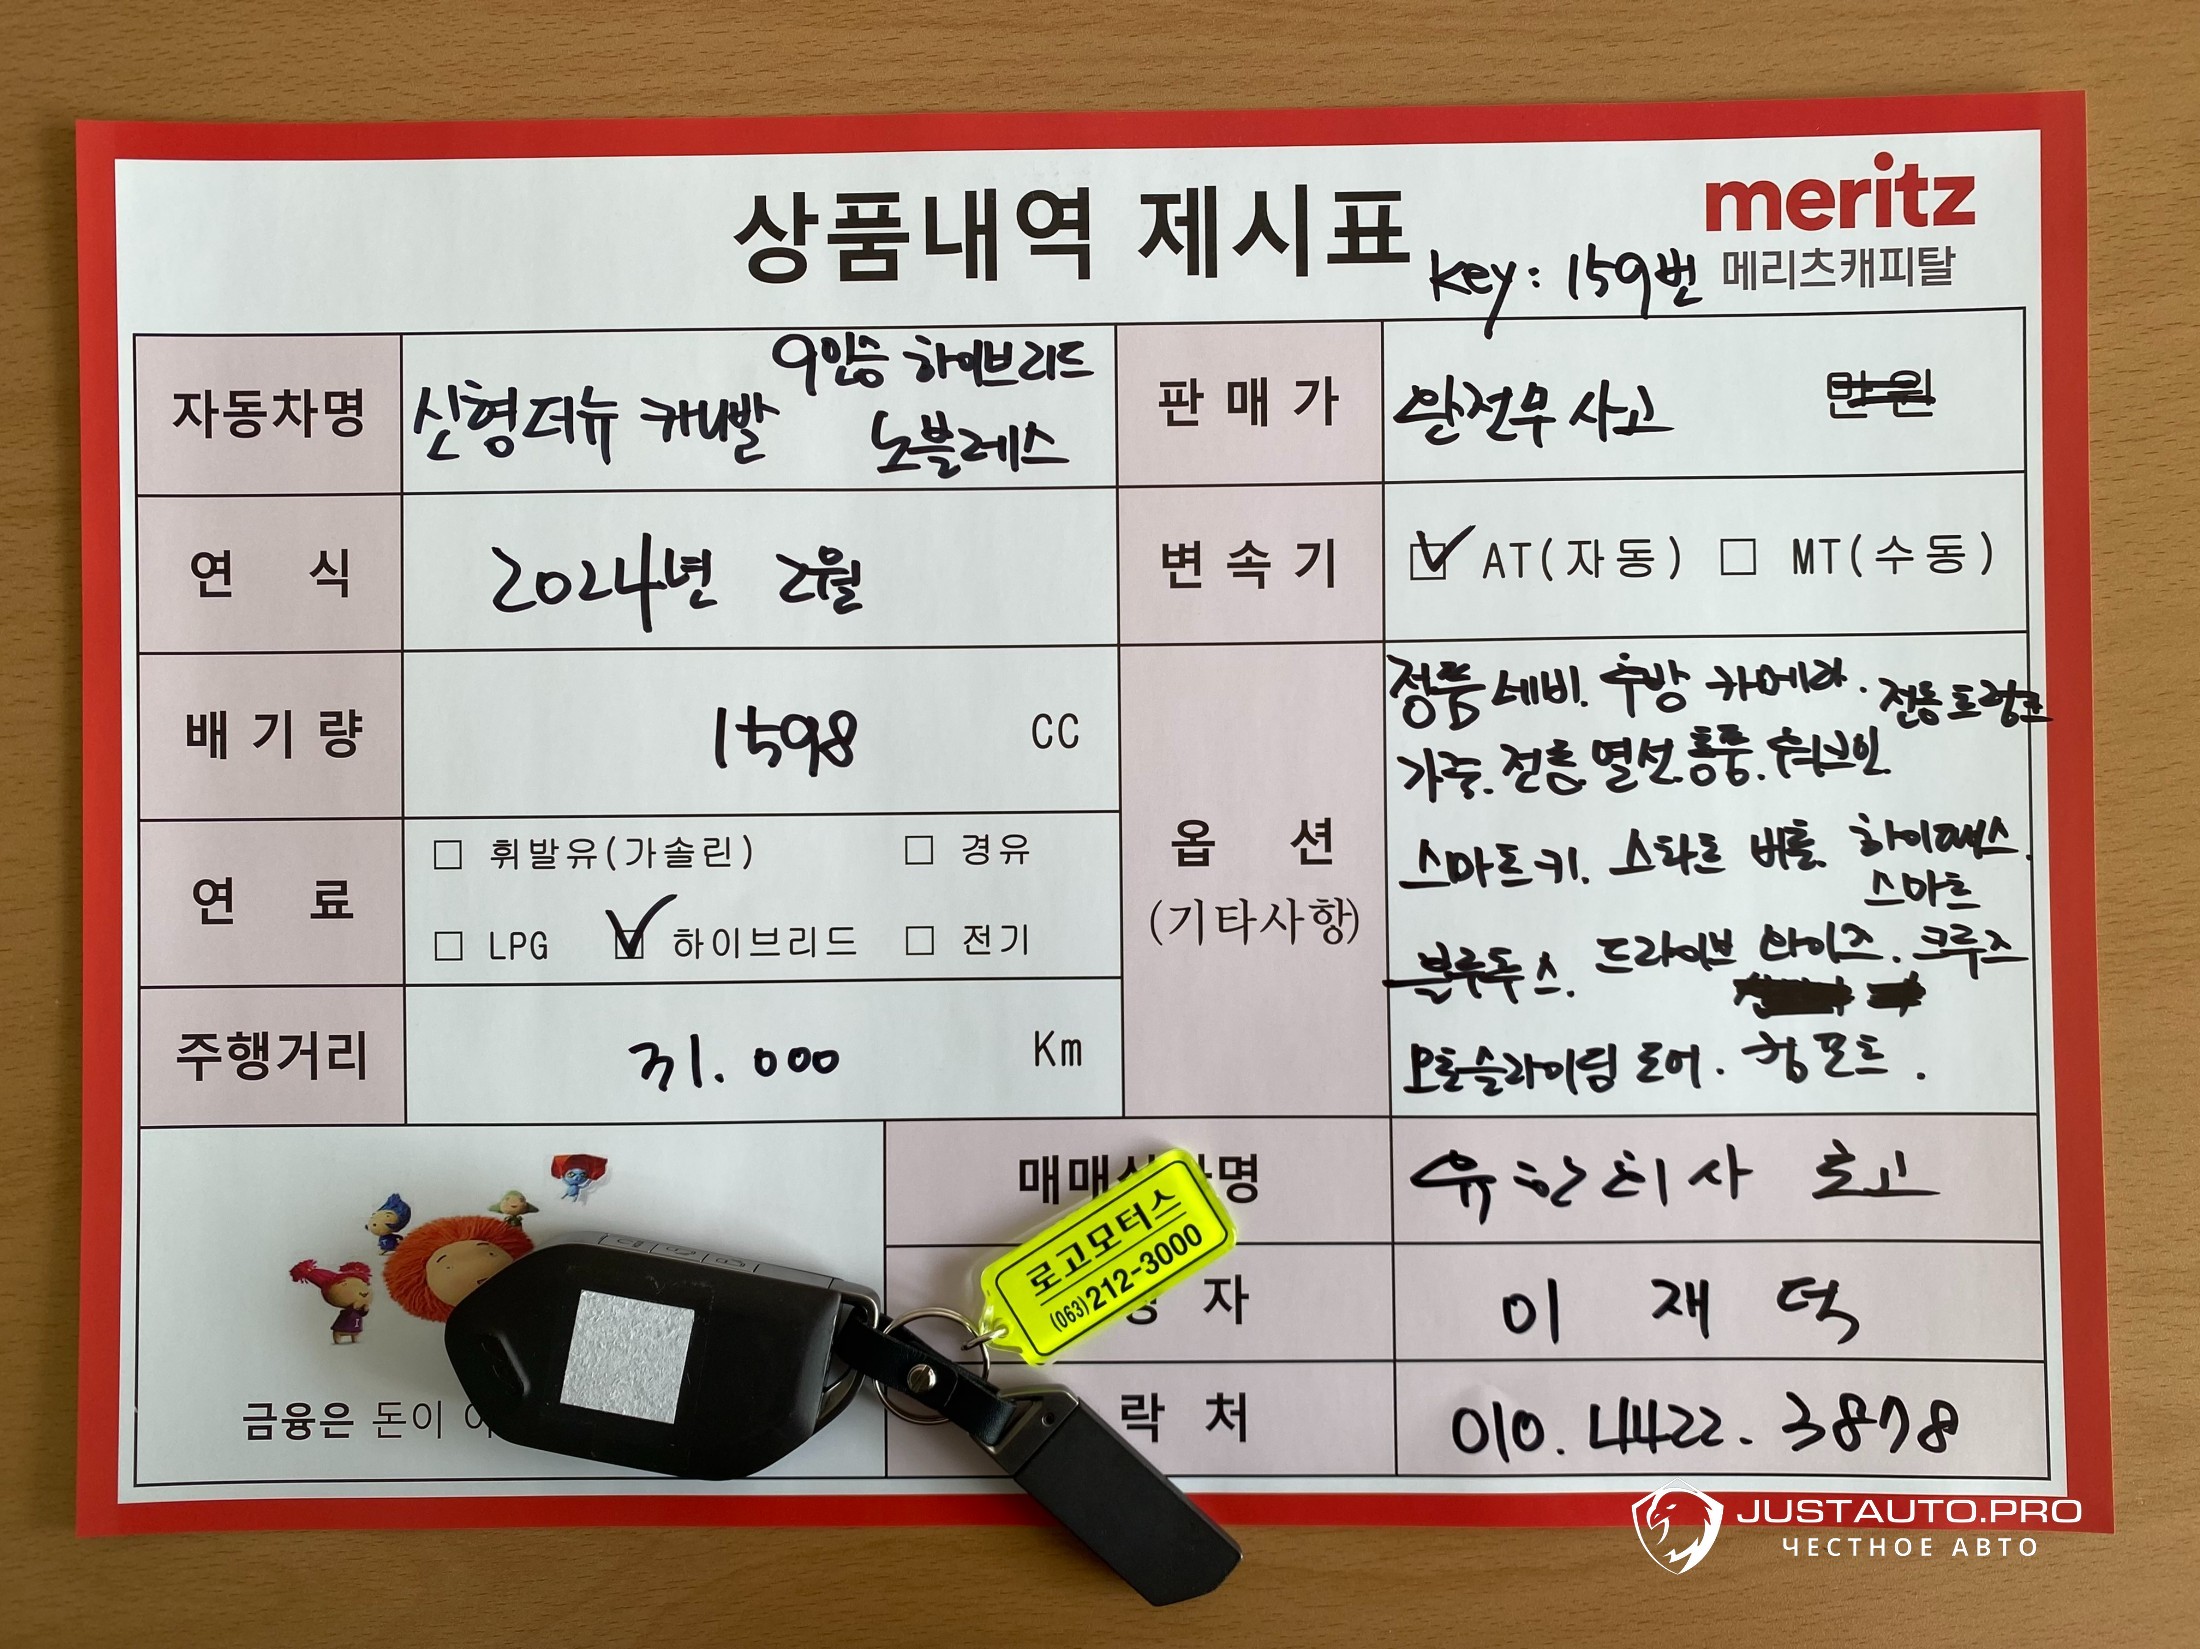 상품내역 제시표
meritz
메리츠캐피탈
Key: 159번
자동차명
신형더뉴 카니발
9인승 하이브리드
노블레스
판매가
완전무사고
만원
연 식
2024년 2월
변속기
AT(자동)
MT(수동)
배기량
1598 CC
옵 션
(기타사항)
정품네비. 후방 카메라. 전동트렁크
가죽. 전동. 열선. 통풍.
스마트키. 스타트 버튼. 하이패스.
스마트
블루투스. 드라이브 와이즈. 크루즈
오토슬라이딩 도어. 컴포트.
연 료
휘발유(가솔린)
경유
LPG
하이브리드
전기
주행거리
31.000 Km
매매
명
유한회사 로고
자
이 재 덕
락 처
010. 4422. 3878
금융은 돈이
로고모터스
(063)212-3000
JUSTAUTO.PRO
ЧЕСТНОЕ АВТО